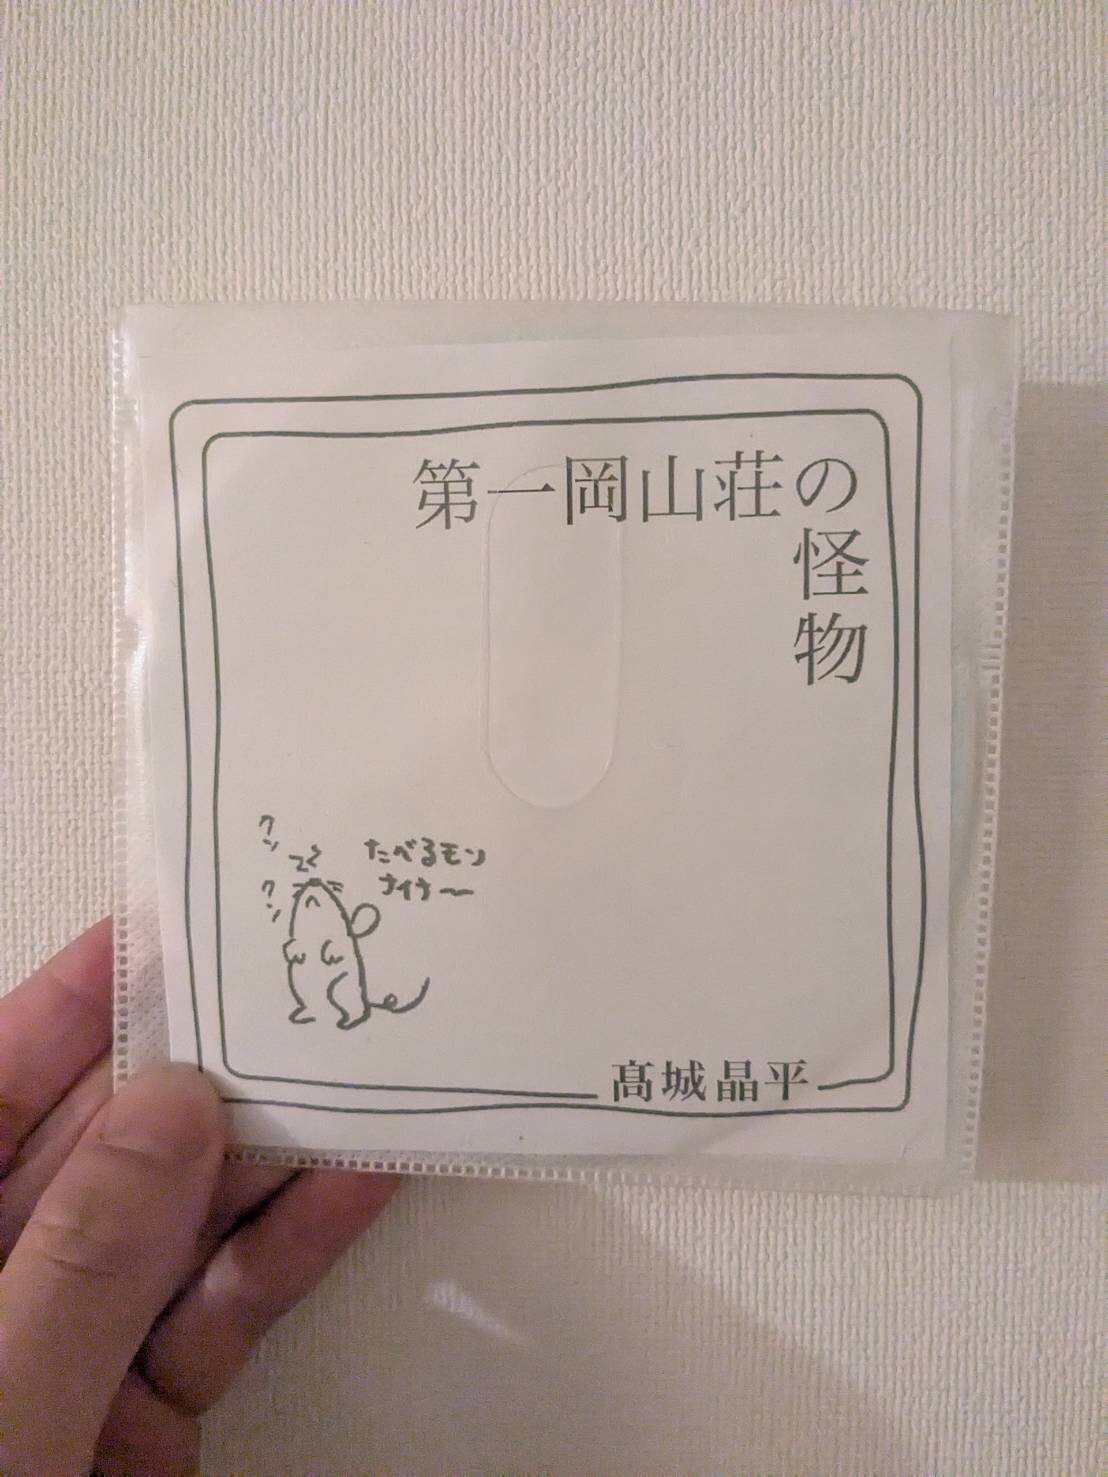 第一岡山荘の怪物
クン
クン
たべるモン
ナイナ〜
髙城晶平